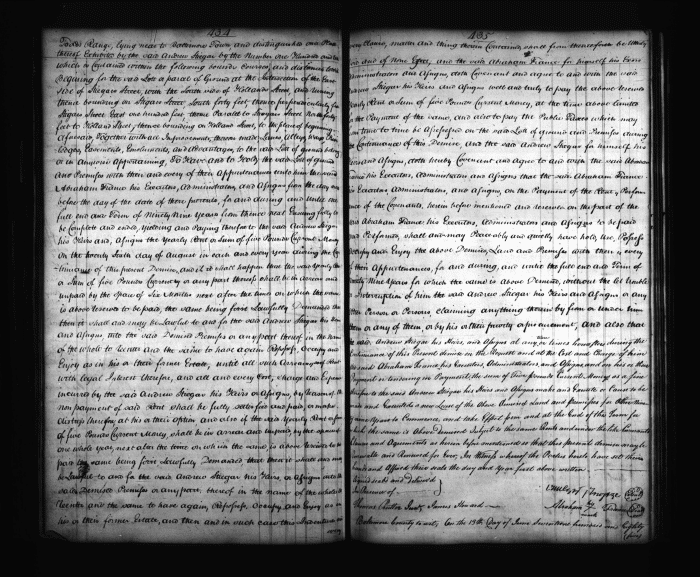 434
Parker Range, lying near to Baltimore Town and distinguished on a Plat
thereof Exhibited by the said Andrew Steigar by the Number One Hundred and
which is Contained within the following bounds Courses, and distances, to wit
Beginning for the said Lott a parcel of Ground at the Intersection of the East
Side of Steigars Street, with the South side of Hollands Street, and running
thence bounding on Steigars Street South forty feet, thence
Steigars Street East one hundred feet thence Parallel to Steigars Street North forty
feet to Holland Street, thence bounding on Holland Street, to the place of beginning
Aforesaid, Together with all Improvements thereon made, Lanes, Alleys, Ways
Easements, Emoluments, and Advantages, to the said Lott of ground belong
or in Anywise Appertaining, To Have and to Hold, the said Lott of ground
and Premises with them and every of their Appurtenances unto him the said
Abraham France his Executors, Administrators, and Assigns from the day next
before the day of the date of these presents, for and during and untill the
full end and Term of Ninety Nine Years from thence next Ensuing fully to
be Compleat and ended, Yielding and Paying therefor to the said Andrew Steigar
his Heirs and, Assigns the Yearly Rent or Sum of five Pounds Current Money
On the twenty Sixth day of August in each and every year during the Con
tinuance of this present Demise, and if it shall happen that the said Yearly Rent
or Sum of five Pounds Currency or any part thereof shall be in arrear and
unpaid by the Space of Six Months next after the time on which the same
is above reserved to be paid, the same being first Lawfully Demanded that
then it shall and may be Lawful to and for the said Andrew Steigar his Heirs
and Assigns into the said Demised Premises or any part thereof in the name
of the whole to Reenter and the same to have again, Repossess, Occupy and
Enjoy as in his or their former Estate, untill all such Arrearages of Rent
with Legal Interest therefor, and all and every Cost, Charge and Expence
incurred by the said Andrew Steigar his Heirs or Assigns, by reason of the
non payment of said Rent shall be fully satisfied and paid, or make
distress therefor at his or their option and also if the said Yearly Rent or Sum
of five Pounds Current Money shall be in arrear and unpaid by the space of
one whole year, next after the time on which the same is above reserved to be
paid same being first Lawfully Demanded, that then it shall and may
be Lawful to and for the said Andrew Steigar his Heirs, or Assigns into the
said Demised Premises or any part thereof in the name of the whole to
Reenter and the same to have again, Repossess, Occupy, and Enjoy as in
his or their former Estate, and then and in such case this Indenture and
435
every Clause, matter and thing therein Contained, shall from thenceforth be Utterly
void and of None Effect, and the said Abraham France for himself his Heirs
Administrators and Assigns, doth Covenant and agree to and with the said
Steigar his Heirs and Assigns well and truly to pay the above reserved
Yearly Rent or Sum of five Pounds Current Money, at the time above limited
for the Payment of the same, and also to pay the Public Taxes which may
from time to time be Assessed on the said Lott of ground and Premises during
the Continuance of this Demise, and the said Andrew Steigar for himself his
Heirs and Assigns, doth hereby Covenant and Agree to and with the said Abraham
France his Executors, Administrators and Assigns that the said Abraham France
his Executors, Administrators, and Assigns, on the Payment of the Rent, & Perform
ance of the Covenants, herein before mentioned and reserved on the part of the
said Abraham France his Executors, Administrators and Assigns to be paid
and Performed, shall and may Peaceably and quietly have hold, Use, Possess
Occupy and Enjoy the above Demised, Land and Premises with them & every
of their Appurtenances, for and during, and untill the full end and Term of
Ninety Nine Years for which the same is above Demised, without the let trouble
or Interruption of him the said Andrew Steigar his Heirs and Assigns or any
other Person or Persons, claiming anything therein by from or under him
them or any of them, or by his or their privity or procurement, and also that
he said Andrew Steigar his Heirs, and Assigns at any times hereafter during the
Continuance of this Present demise on the Request and at the Cost and Charge of him
the said Abraham France his Executors, Administrators, and Assigns
shall make and Execute or Cause to be
made and Executed a new Lease of the Above Demised Land and Premises for
Ninety nine Years to Commence, and take Effect from and at the End of the Term for
which the same is Above Demised Subject to the same Rents and under the like Covenants
Clauses and Agreements as herein before mentioned so that this present demise may be
renewable and Renewed for Ever, In Witness whereof the Parties hereto have set their
hands and Affixed their seals the day and Year first above written
Signed sealed and delivered
In Presence of
Andrew Steigar (Seal)
Abraham his mark France (Seal)
James Howard
Baltimore County to wit, On the 13th Day of June Seventeen hundred and Eighty